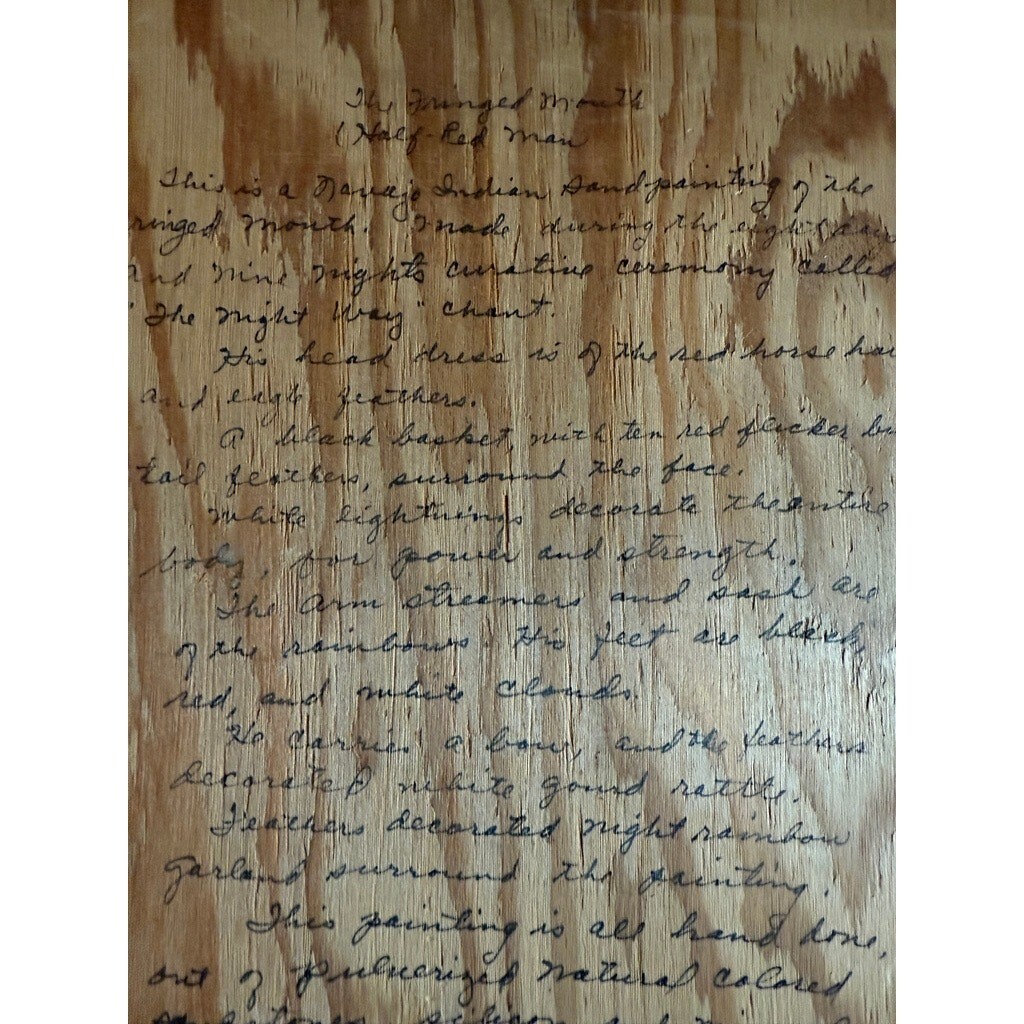 The Fringed Mouth
(Half-Red Man
This is a Navajo Indian Sandpainting of the
ringed Mouth. Made, during the eight days
and nine nights curative ceremony called
"The Night Way" chant.
His head dress is of the red horse hai
and eagle feathers.
A black basket, with ten red flicker bi
tail feathers, surround the face.
White lightnings decorate the entire
body, for power and strength.
The arm streamers and sash are
of the rainbows. His feet are black,
red, and white clouds.
He carries a bow, and the feathers
decorated white gourd rattle.
Feathers decorated night rainbow
garland surround the painting.
This painting is all hand done,
out of pulverized natural colored